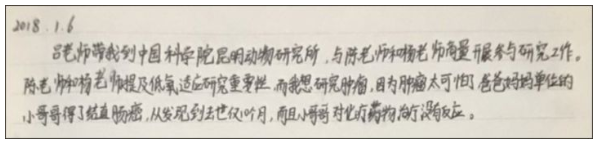 2018.1.6
吕老师带我到中国科学院昆明动物研究所，与陈老师和杨老师商量开展参与研究工作。
陈老师和杨老师提及低氧适应研究重要性，而我想研究肿瘤，因为肿瘤太可怕了，爸爸妈妈单位的
小哥哥得了结直肠癌，从发现到去世仅10个月，而且小哥哥对化疗药物治疗没有反应。